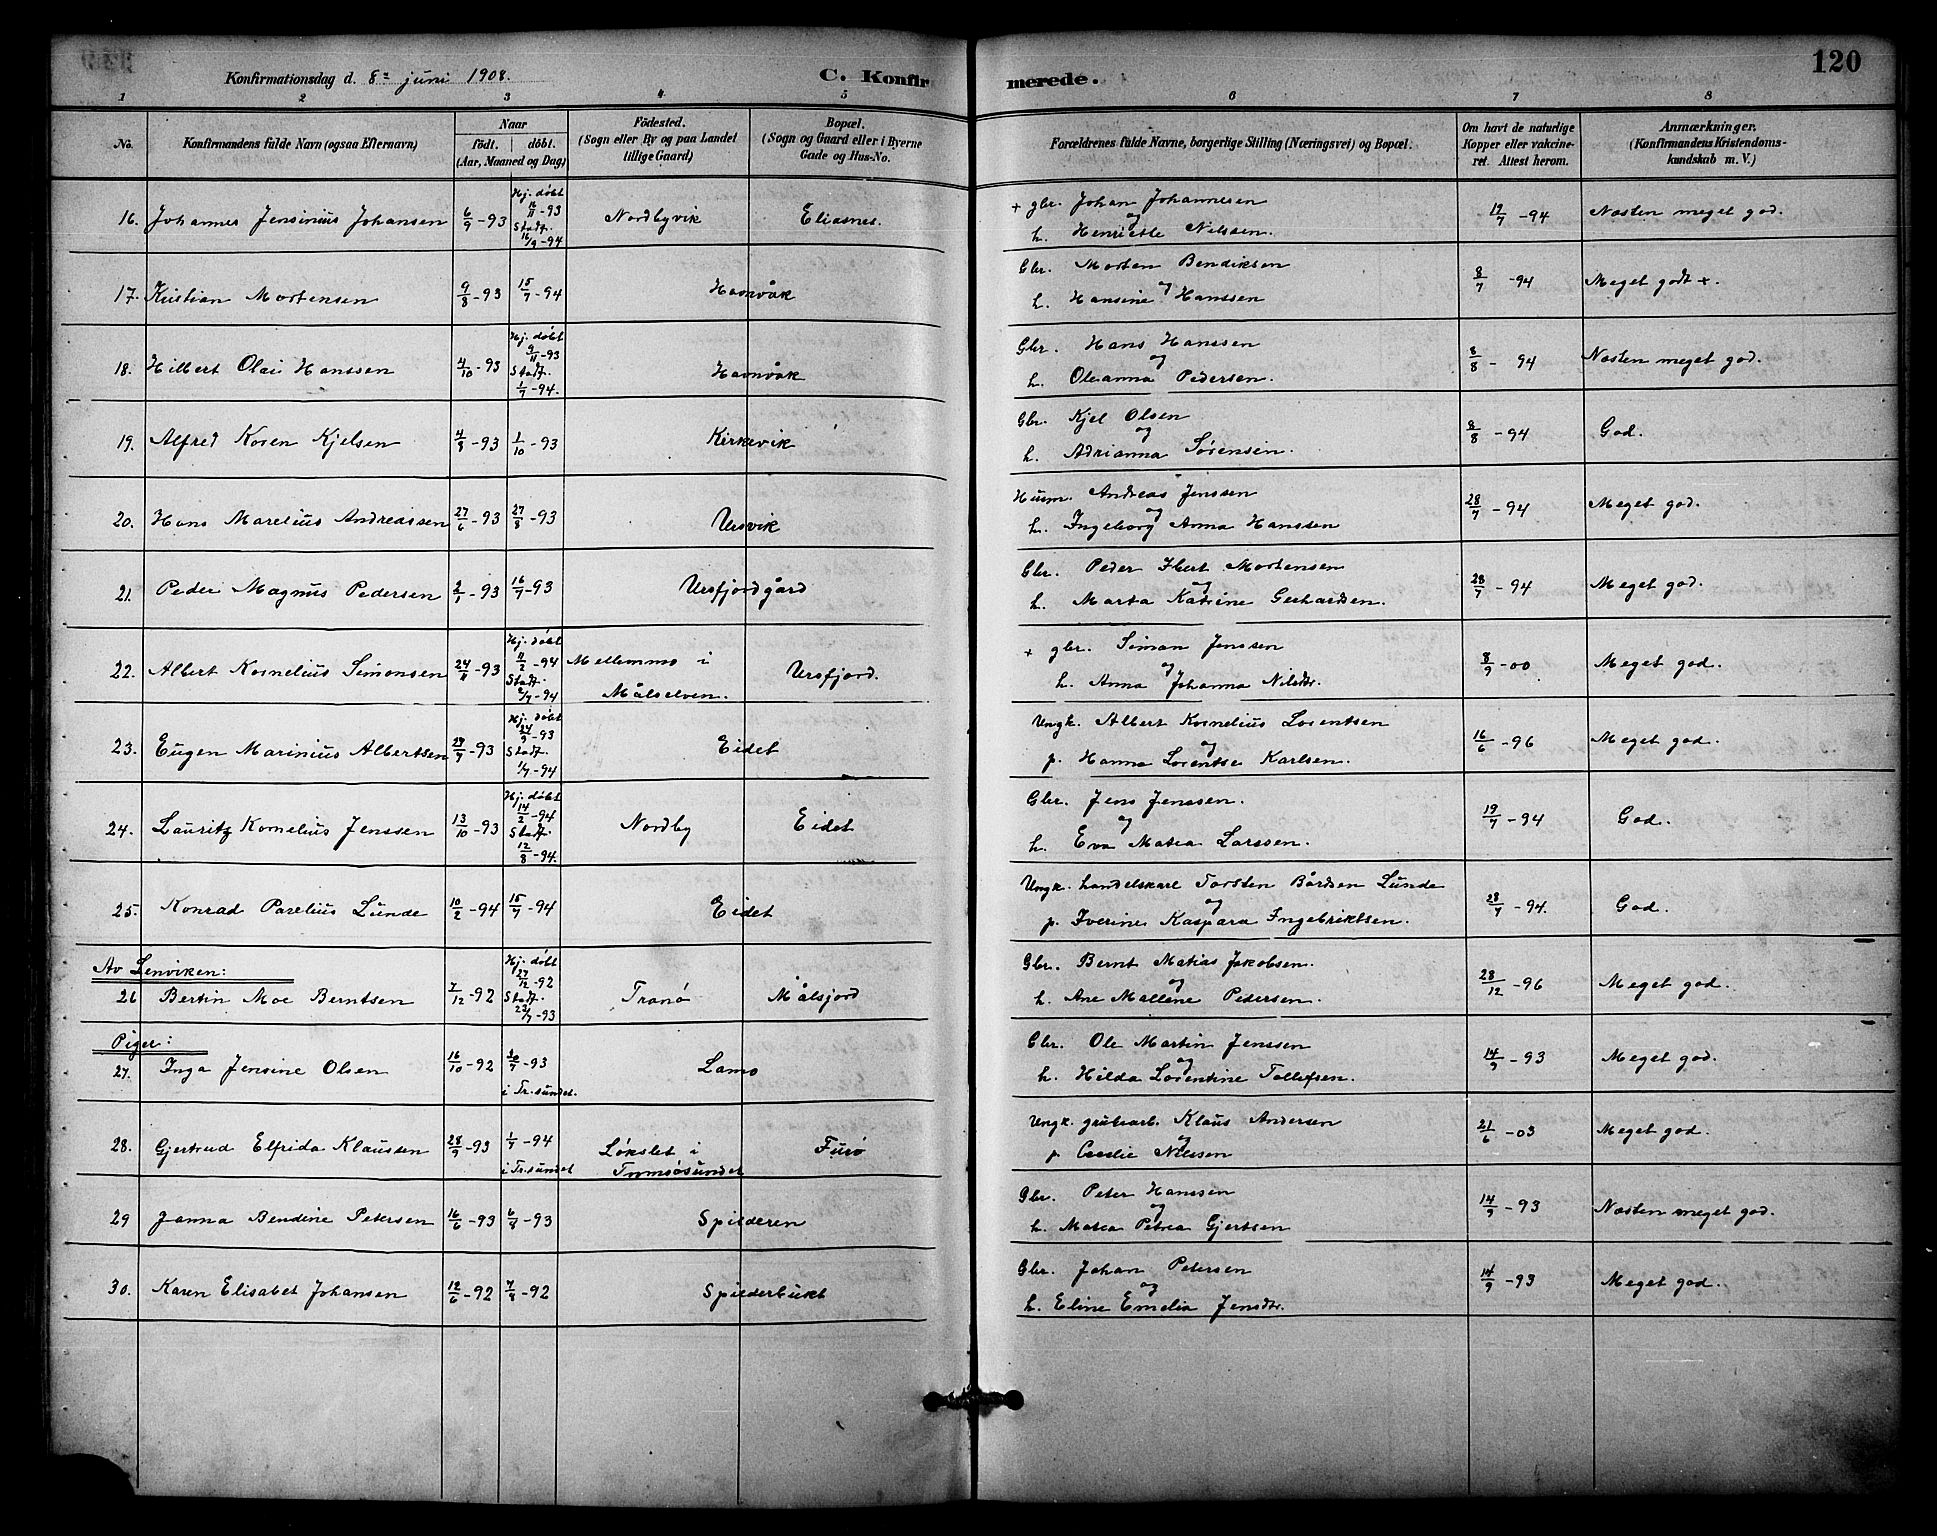 120
Konfirmationsdag d. 8de juni 1908.
C. Konfirmerede.
1 2 3 4 5 6 7 8
No. Konfirmandens fulde Navn (ogsaa Efternavn) Naar födt. döbt. (Aar, Maaned og Dag) Födested. (Sogn eller By og paa Landet tillige Gaard) Bopæl. (Sogn og Gaard eller i Byerne Gade og Hus-No. Forældrenes fulde Navne, borgerlige Stilling (Næringsvei) og Bopæl. Om havt de naturlige Kopper eller vakcineret. Attest herom. Anmærkninger. (Konfirmandens Kristendomskundskab m. V.)
16. Johannes Jensinius Johansen 6/9-93 Hj. døbt 12/11-93 Stadf. 16/9-94 Nordbyvik Eliasnes. + gbr. Johan Johannesen og h. Henriette Nilsen. 19/7-94 Næsten meget god.
17. Kristian Mortensen 9/8-93 15/7-94 Havnvåk Gbr. Morten Bendiksen og h. Hansine Hanssen 8/7-94 Meget godt +.
18. Hilbert Olai Hanssen 4/10-93 Hj. døbt 9/11-93 Stadf. 1/7-94. Havnvåk Gbr. Hans Hanssen og h. Oleanna Pedersen. 8/8-94 Næsten meget god.
19. Alfred Koren Kjelsen 4/8-93 1/10-93 Kirkevik Gbr. Kjel Olsen og h. Adrianna Sørensen. 8/8-94 God.
20. Hans Marelius Andreassen 27/6-93 27/8-93 Ursvik Husm. Andreas Jenssen og h. Ingeborg Anna Hanssen 28/7-94 Meget god.
21. Peder Magnus Pedersen 2/1-93 16/7-93 Ursfjordgård Gbr. Peder Hbert Mortensen og h. Marta Katrine Gerhardsen. 28/7-94 Meget god.
22. Albert Kornelius Simonsen 24/11-93 Hj. døbt 11/2-94 Stadf. 2/7-94 Mellemmo i Målselven. Ursfjord. + gbr. Simon Jenssen og h. Anna Johanna Nilsdtr. 8/9-00 Meget god.
23. Eugen Marinius Albertsen 29/7-93 Hj. døbt 24/9-93 Stadf. 1/7-94 Eidet Ungk. Albert Kornelius Lorentsen og p. Hanna Lorentse Karlsen. 16/6-96 Meget god.
24. Lauritz Kornelius Jenssen 13/10-93 Hj. døbt 14/2-94 Stadf. 12/8-94. Nordby Eidet Gbr. Jens Jenssen. og h. Eva Matea Larssen. 19/7-94 God.
25. Konrad Parelius Lunde 10/2-94 15/7-94 Eidet Ungk. handelskarl Torsten Bårdsen Lunde og p. Iverine Kaspara Ingebriktsen. 28/7-94. God.
Av Lenviken:
26 Bertin Moe Berntsen 7/12-92 Hj. døbt 27/12-92 Stadf. 23/7-93 Tranø Målsjord Gbr. Bernt Matias Jakobsen. og h. Ane Mallene Pedersen. 28/12-96 Meget god.
Piger:
27. Inga Jensine Olsen 16/10-92 30/7-93 i Tr.sundet. Lamo Gbr. Ole Martin Jenssen og h. Hilda Lorentine Tollefsen. 14/9-93 Meget god.
28. Gjertrud Elfrida Klaussen 28/9-93 1/7-94 i Tr.sundet Løkslet i Tromsøsundet Furø Ungk. grubearb. Klaus Andersen og p Cecelie Nilssen 21/6-03 Meget god.
29 Janna Bendine Petersen 16/6-93 6/8-93 Spilderen Gbr. Peter Hanssen og h. Matea Petrea Gjertsen 14/9-93 Næsten meget god.
30. Karen Elisabet Johansen 12/6-92 7/8-92 Spilderbukt Gbr. Johan Petersen og h. Eline Emelia Jensdtr. 14/9-93 Meget god.